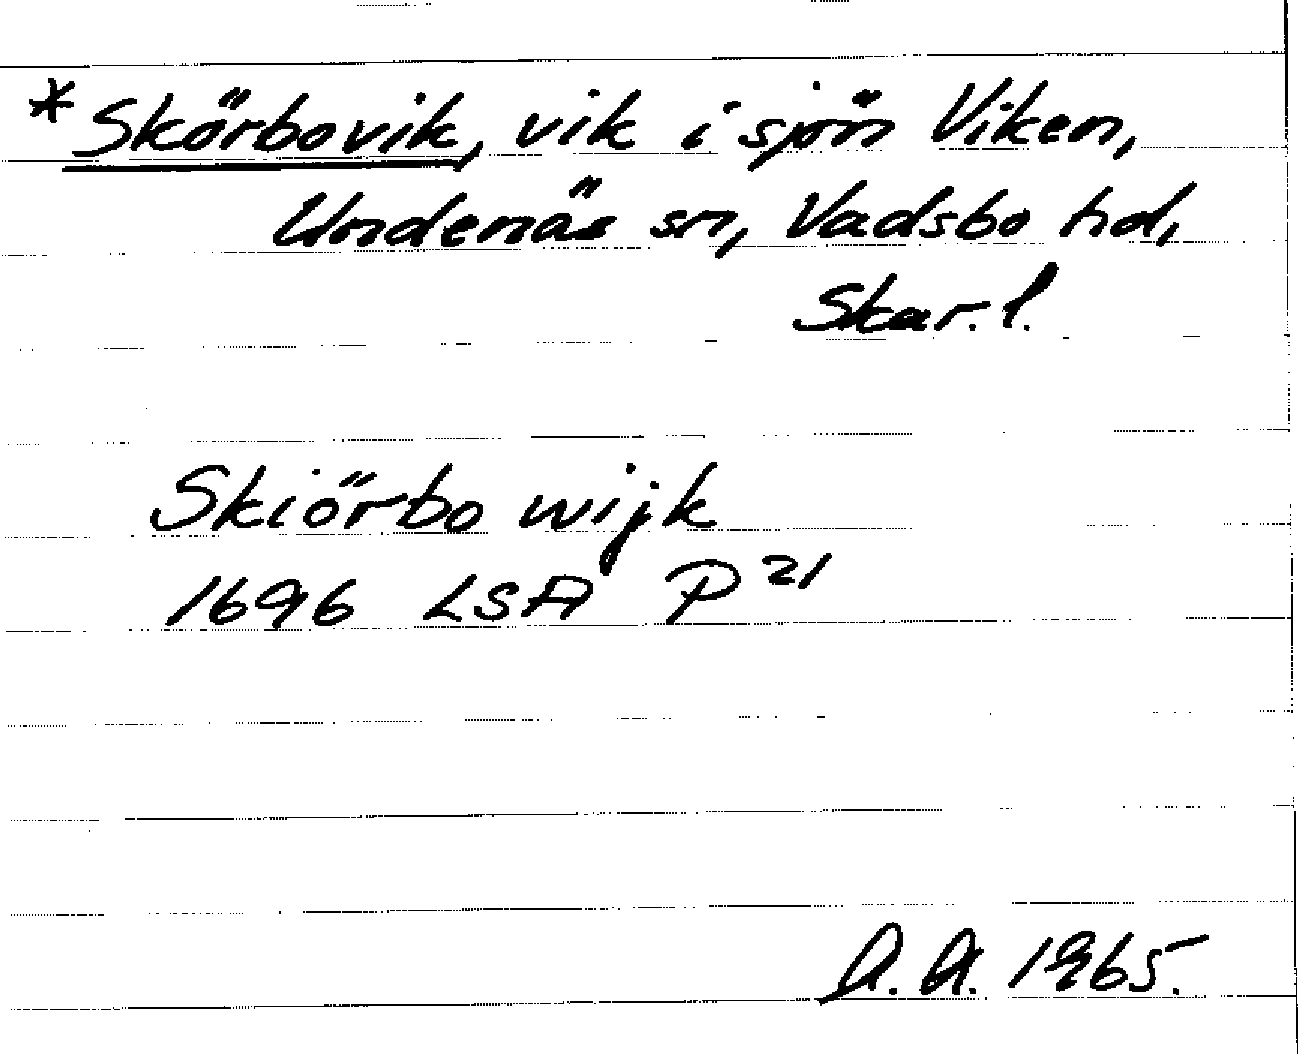 *Skörbovik, vik i sjön Viken,
Undenäs sn, Vadsbo hd,
Skar. l.
Skiörbo wijk
1696 LSA P 21
A. A. 1965.